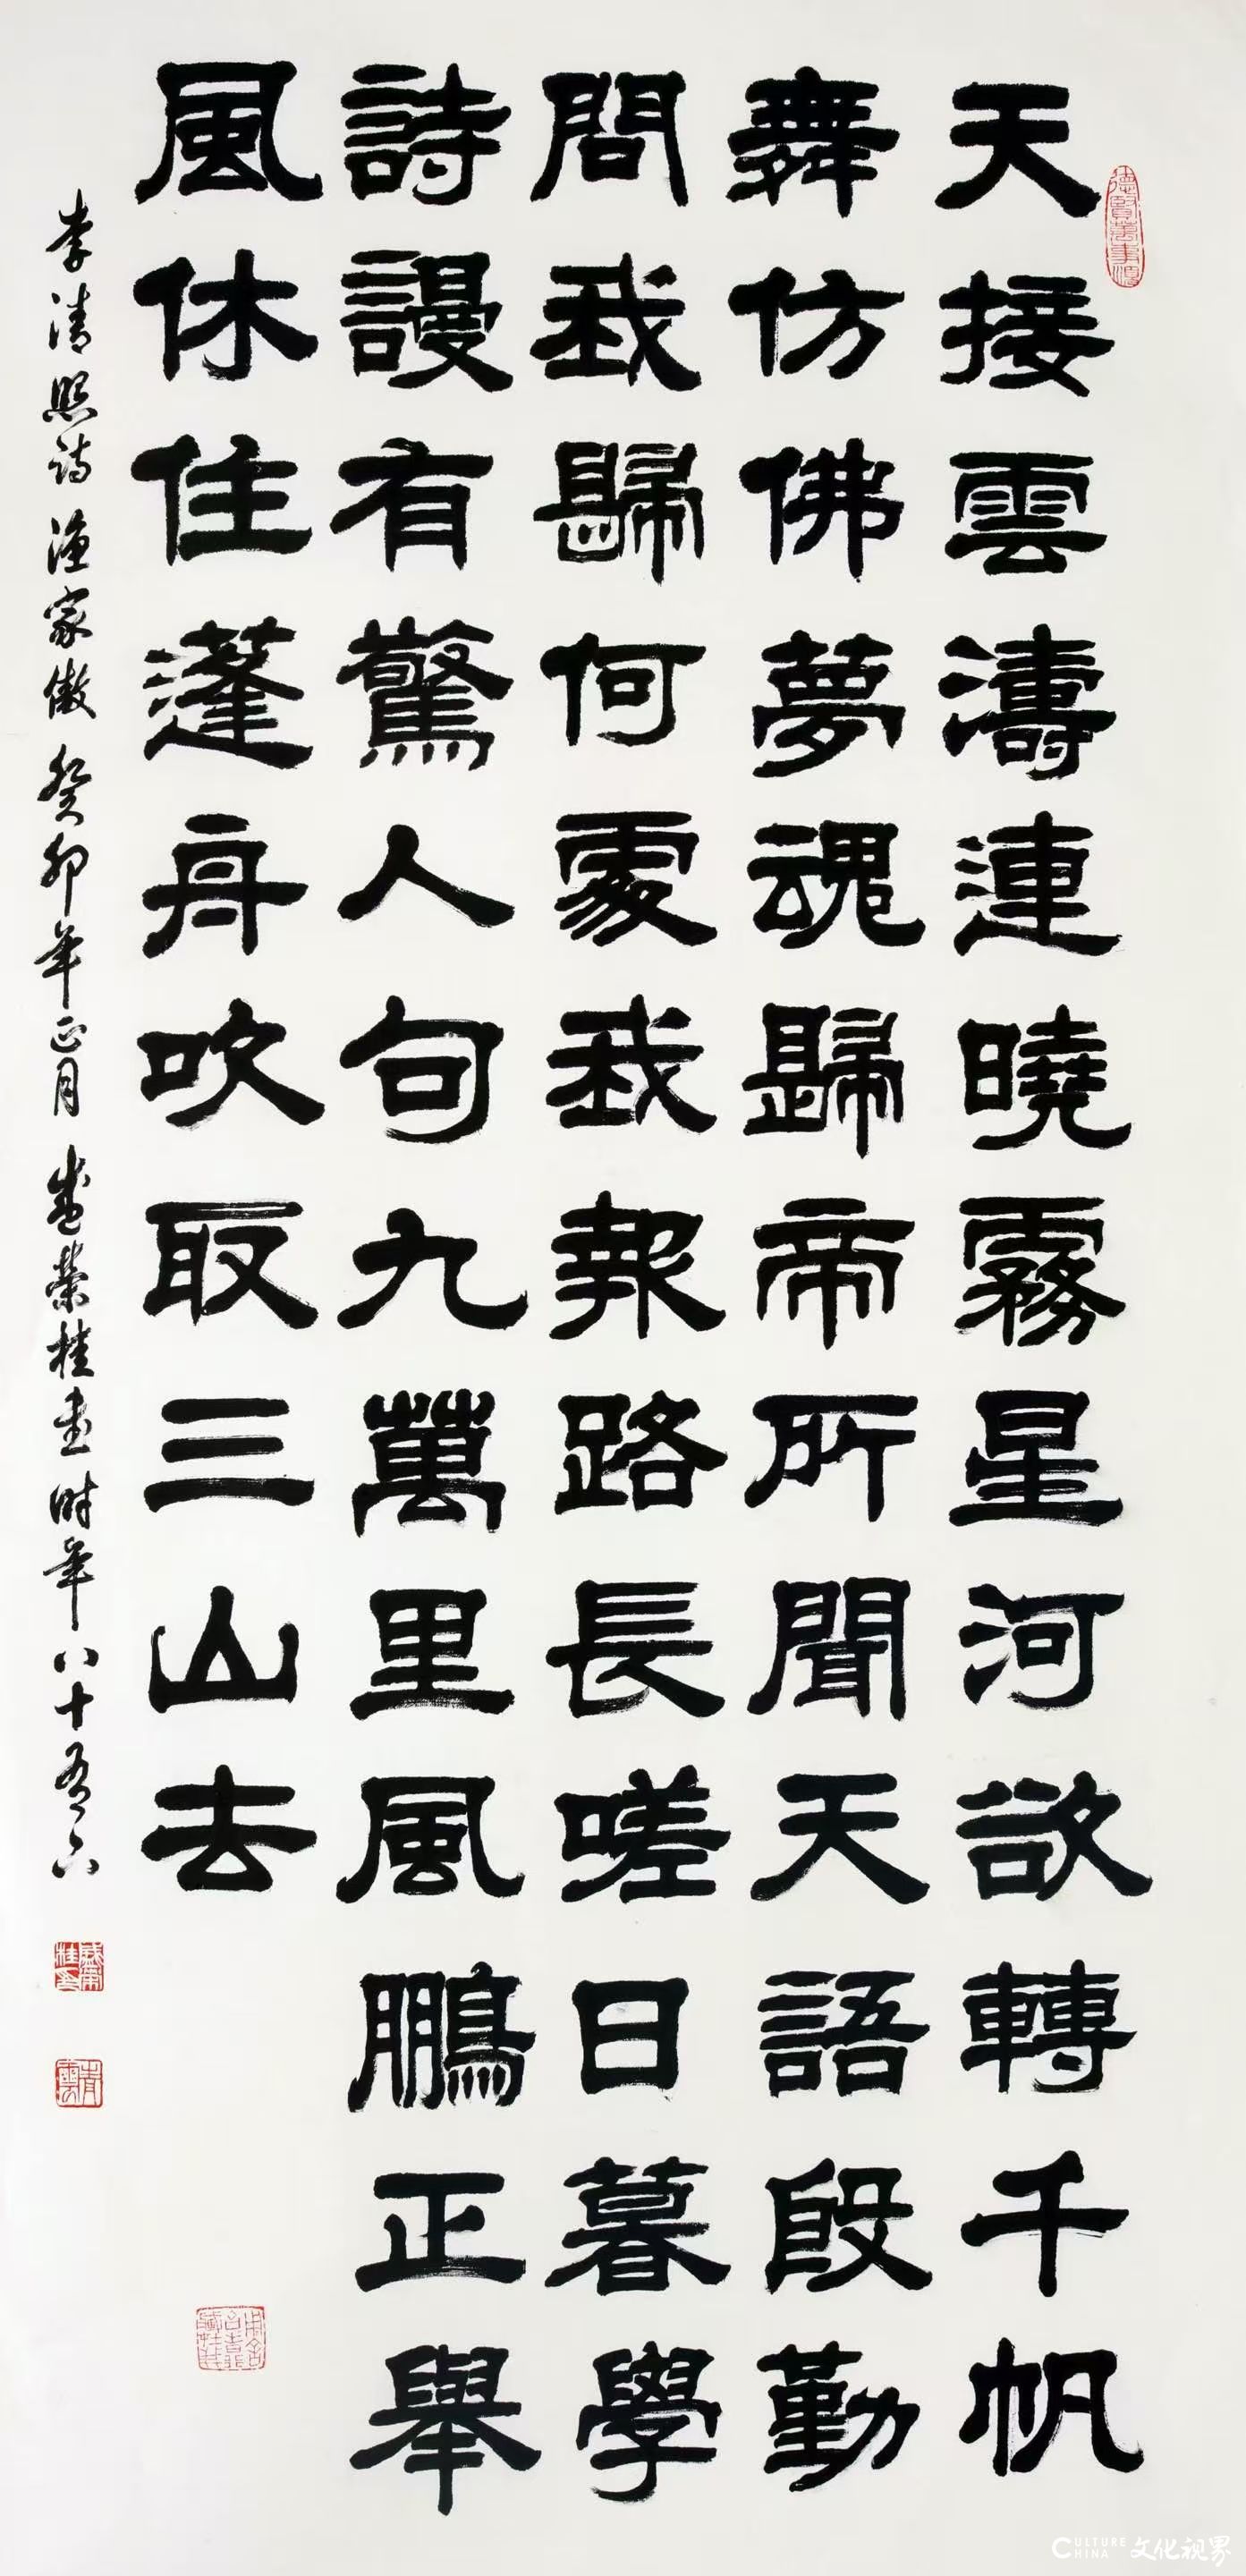 天接雲濤連曉霧星河欲轉千帆
舞仿佛夢魂歸帝所聞天語殷勤
問我歸何處我報路長嗟日暮學
詩謾有驚人句九萬里風鵬正舉
風休住蓬舟吹取三山去
李清照詩漁家傲 癸卯年正月 盛榮桂書时年八十有六
德賢萬事順
盛榮桂印
CULTURE CHINA 文化视界